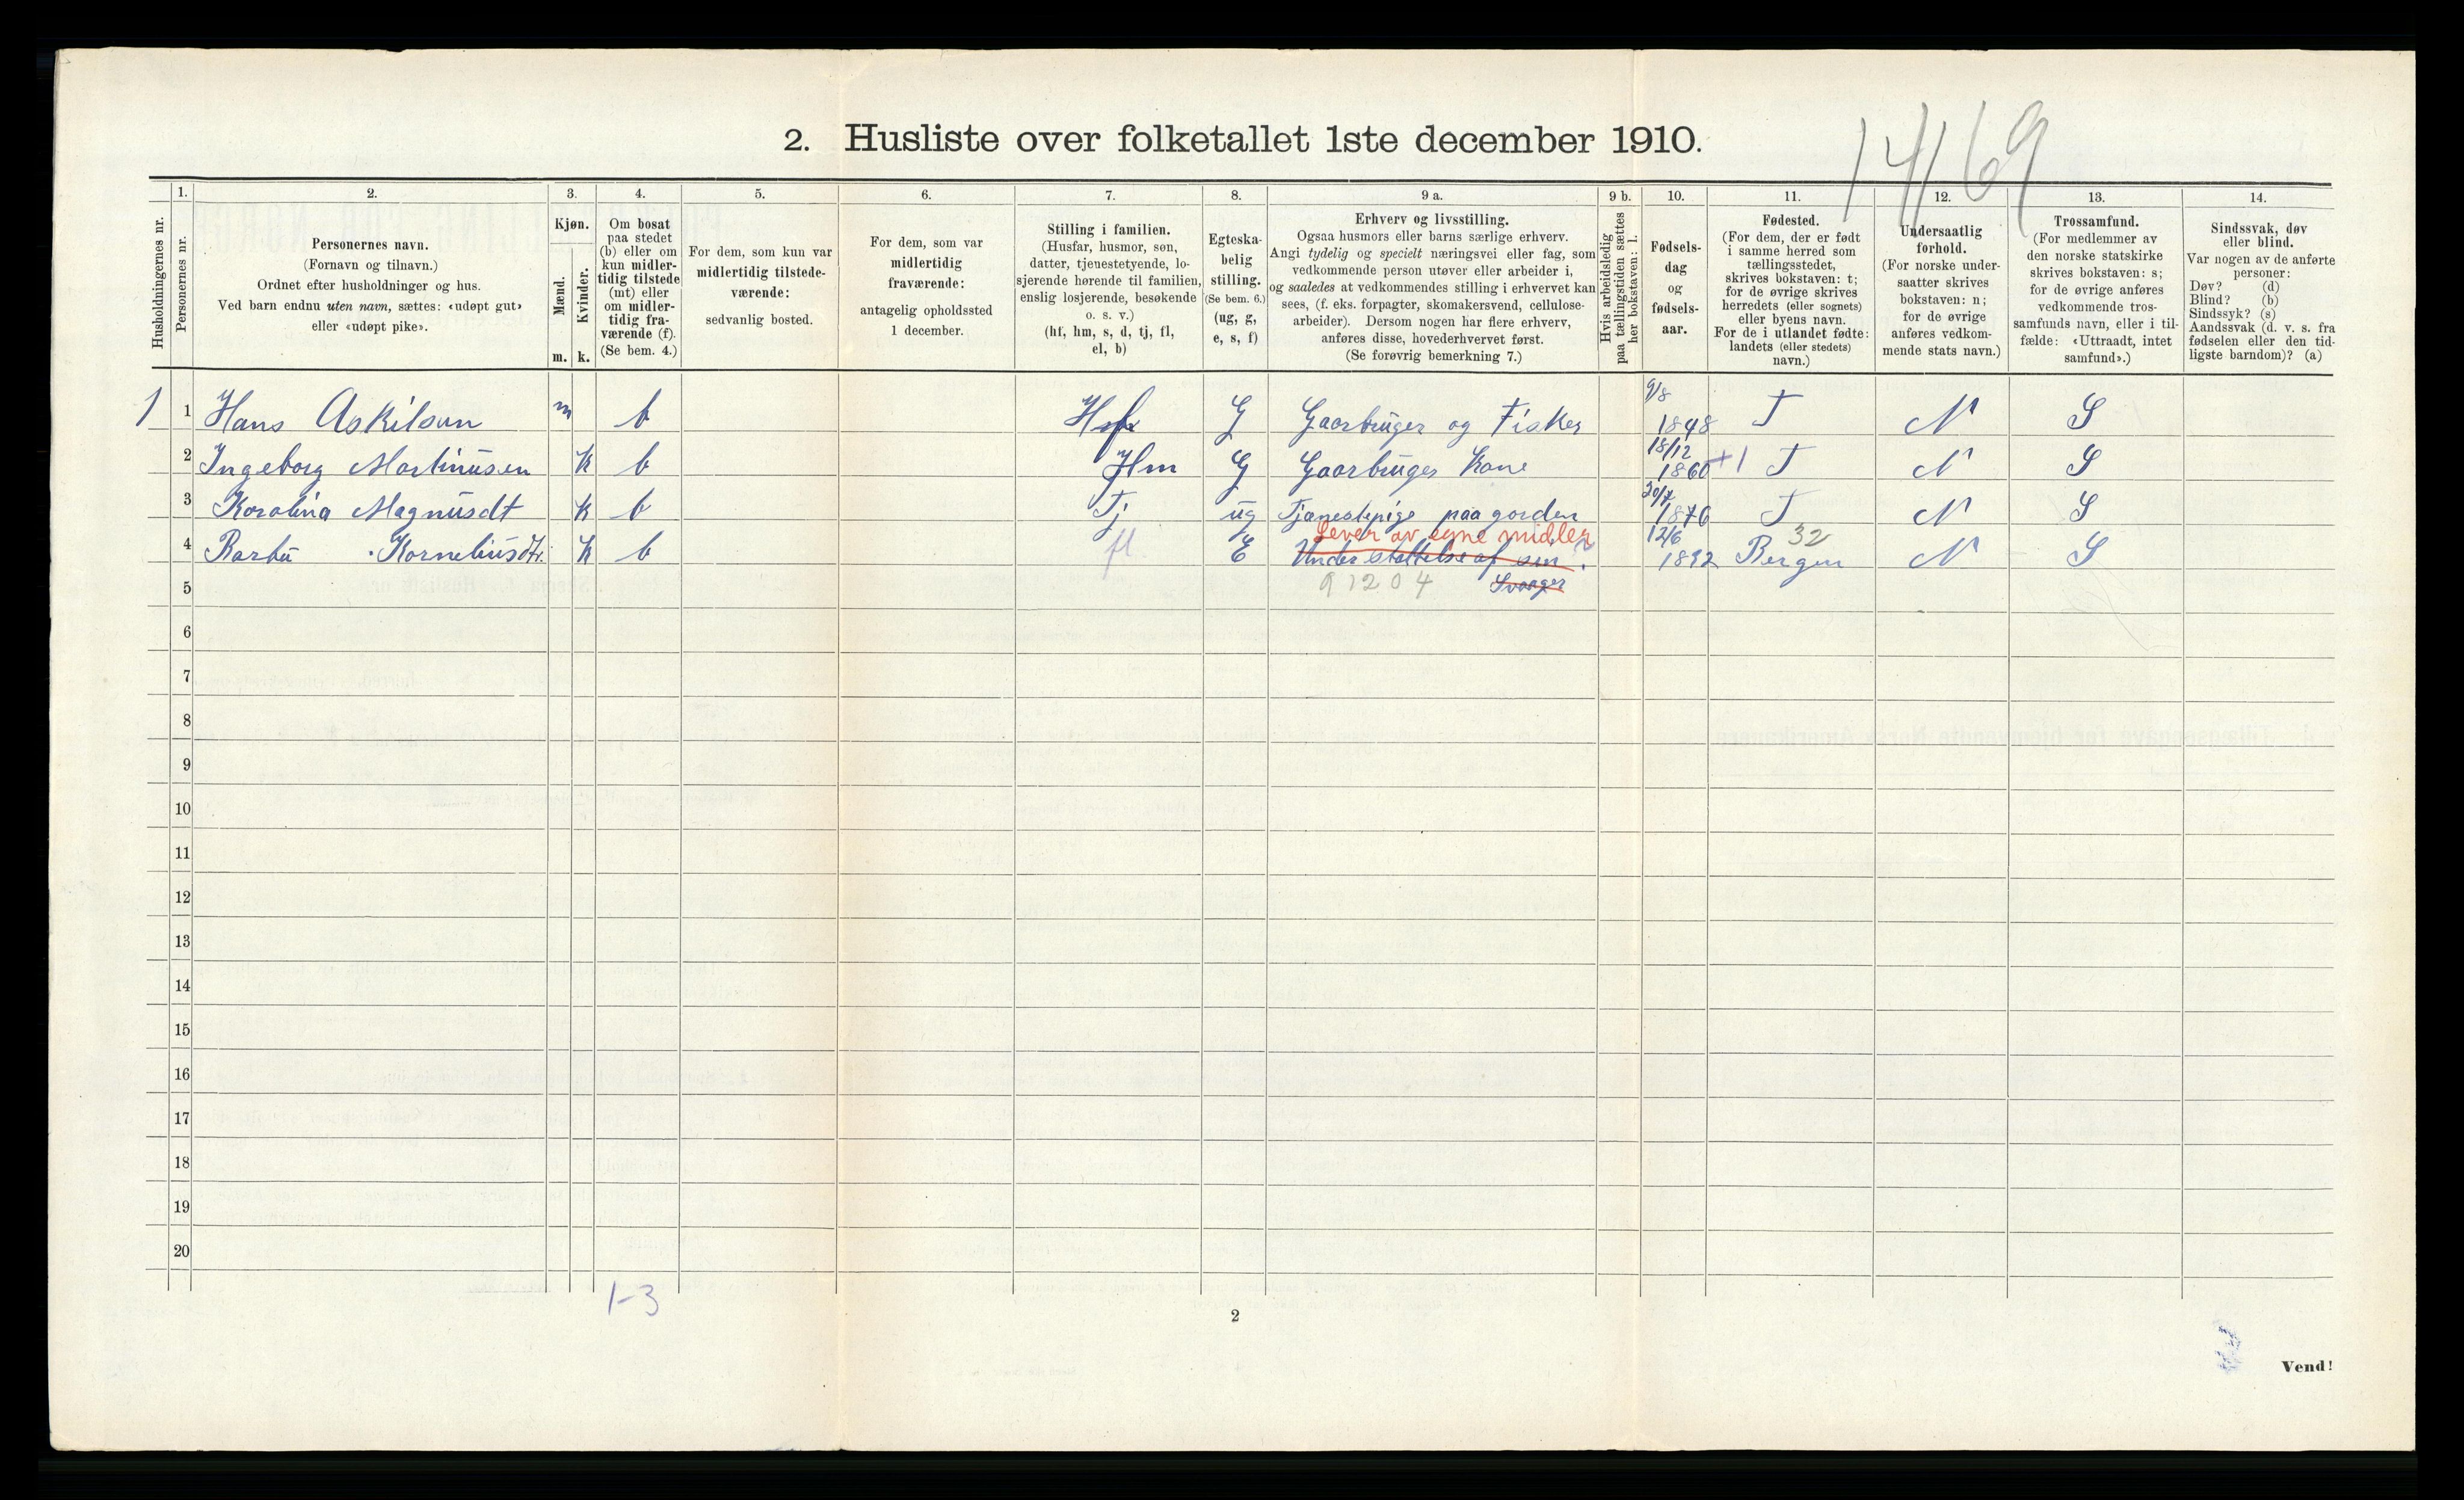 14/69
2. Husliste over folketallet 1ste december 1910.
Husholdningernes nr.
1.
Personernes nr.
2.
Personernes navn.
(Fornavn og tilnavn.)
Ordnet efter husholdninger og hus.
Ved barn endnu uten navn, sættes: «udøpt gut»
eller «udøpt pike».
3.
Kjøn.
Mænd.
Kvinder.
m. k.
4.
Om bosat
paa stedet
(b) eller om
kun midler-
tidig tilstede
(mt) eller
om midler-
tidig fra-
værende (f).
(Se bem. 4.)
5.
For dem, som kun var
midlertidig tilstede-
værende:
sedvanlig bosted.
6.
For dem, som var
midlertidig
fraværende:
antagelig opholdssted
1 december.
7.
Stilling i familien.
(Husfar, husmor, søn,
datter, tjenestetyende, lo-
sjerende hørende til familien,
enslig losjerende, besøkende
o. s. v.)
(hf, hm, s, d, tj, fl,
el, b)
8.
Egteska-
belig
stilling.
(Se bem. 6.)
(ug, g,
e, s, f)
9 a.
Erhverv og livsstilling.
Ogsaa husmors eller barns særlige erhverv.
Angi tydelig og specielt næringsvei eller fag, som
vedkommende person utøver eller arbeider i,
og saaledes at vedkommendes stilling i erhvervet kan
sees, (f. eks. forpagter, skomakersvend, cellulose-
arbeider). Dersom nogen har flere erhverv,
anføres disse, hovederhvervet først.
(Se forøvrig bemerkning 7.)
9 b.
Hvis arbeidsledig
paa tællingstiden sættes
her bokstaven: l.
10.
Fødsels-
dag
og
fødsels-
aar.
11.
Fødested.
(For dem, der er født
i samme herred som
tællingsstedet,
skrives bokstaven: t;
for de øvrige skrives
herredets (eller sognets)
eller byens navn.
For de i utlandet fødte:
landets (eller stedets)
navn.)
12.
Undersaatlig
forhold.
(For norske under-
saatter skrives
bokstaven: n;
for de øvrige
anføres vedkom-
mende stats navn.)
13.
Trossamfund.
(For medlemmer av
den norske statskirke
skrives bokstaven: s;
for de øvrige anføres
vedkommende tros-
samfunds navn, eller i til-
fælde: «Uttraadt, intet
samfund».)
14.
Sindssvak, døv
eller blind.
Var nogen av de anførte
personer:
Døv? (d)
Blind? (b)
Sindssyk? (s)
Aandssvak (d. v. s. fra
fødselen eller den tid-
ligste barndom)? (a)
1 1 Hans Askilsen m b Hf G Gaarbruger og Fisker 9/8 1848 T N S
2 Ingeborg Martinusen k b Hm G Gaarbruger Kone 18/12 1860 +1 T N S
3 Karolina Magnusdt k b Tj ug Tjenestepige paa gorden 20/7 1876 T N S
Lever av egne midler 32
4 Barbu Korneliusdtr. k b fl E Understøttelse af sin 12/6 1832 Bergen N S
5 91204 Svoger
6
7
8
9
10
11
12
13
14
15
16
17
18
19
20
1-3
2
Vend!